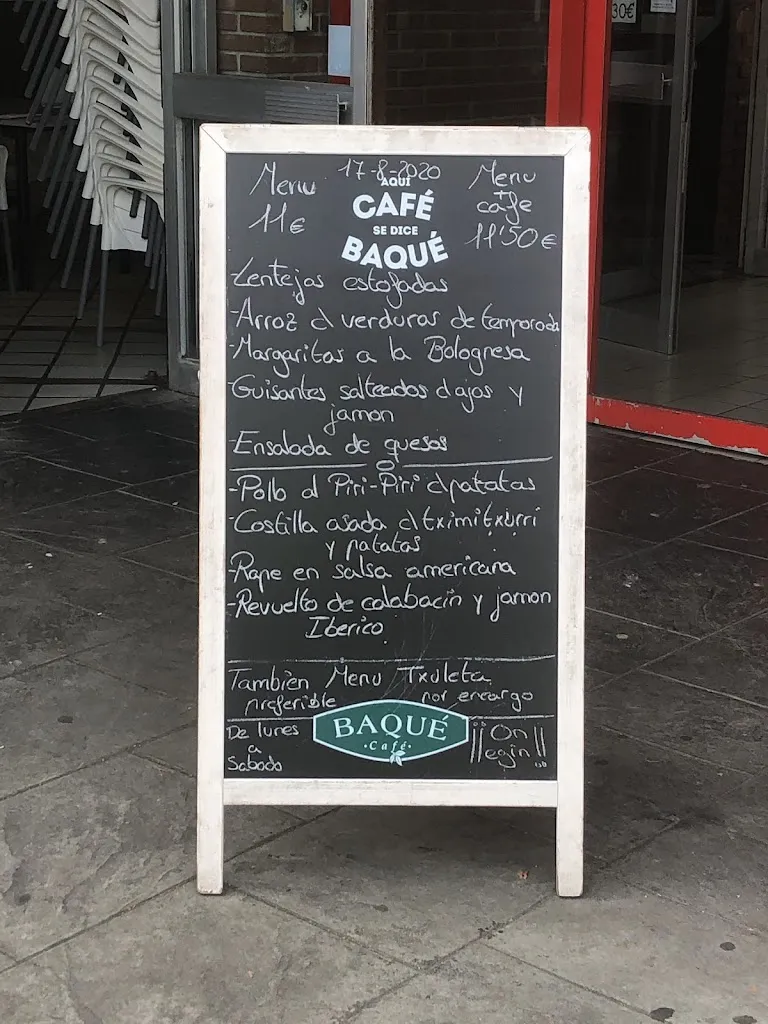 30€
Menu 17-8-2020 Menu
+
11€ café
11'50€
AQUÍ
CAFÉ
SE DICE
BAQUÉ
-Lentejas estofadas
-Arroz c/ verduras de temporada
-Margaritas a la Bolognesa
-Guisantes salteados c/ajos y
jamon
-Ensalada de quesos
-Pollo al Piri-Piri c/patatas
-Costilla asada c/ tximitxurri
y patatas
-Rape en salsa americana
-Revuelto de calabacín y jamon
Iberico
También Menu Txuleta
preferible por encargo
De lunes
a
Sabado
BAQUÉ
·Café·
¡¡On
egin!!